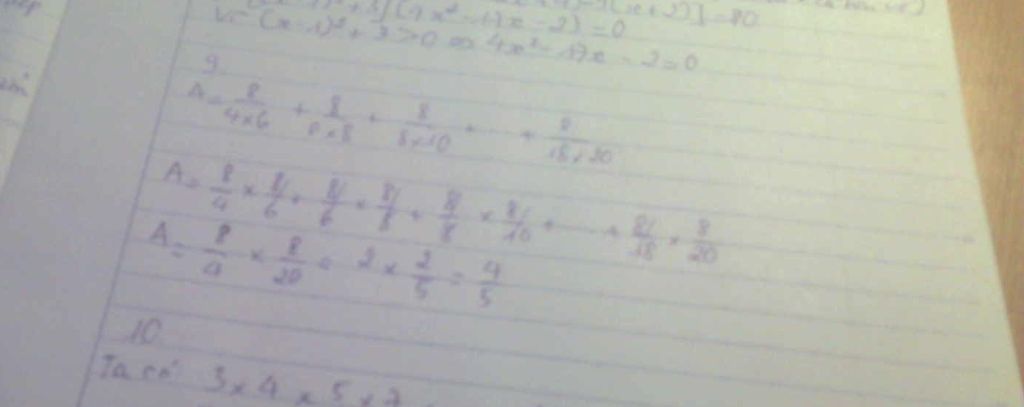 (x-1)² + 3](4x² - 17x - 2) = 0
Vì (x-1)² + 3 > 0 => 4x² - 17x - 2 = 0
9.
A = 8/4×6 + 8/6×8 + 8/8×10 + ... + 8/18×20
A = 8/4 × 8/6 + 8/6 × 8/8 + 8/8 × 8/10 + ... + 8/18 × 8/20
A = 8/4 × 8/20 = 2 × 2/5 = 4/5
10.
Ta có 3 × 4 × 5 × 7